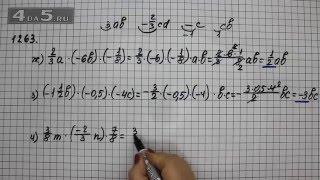 4DA5.RU
3ab -2/3 cd -c 1b
1263.
ж) 2/3 a · (-6b) · (-1/8) = 2/3 · (-6) · (-1/8) ab = 2·6·1/3·8 ab = 1/2 ab
з) (-1 1/2 b) · (-0,5) · (-4c) = -3/2 · (-0,5) · (-4) · bc = -3·0,5·4²/2 bc = -3bc
и) 3/8 m · (-2/3 n) · 7/8 = 3